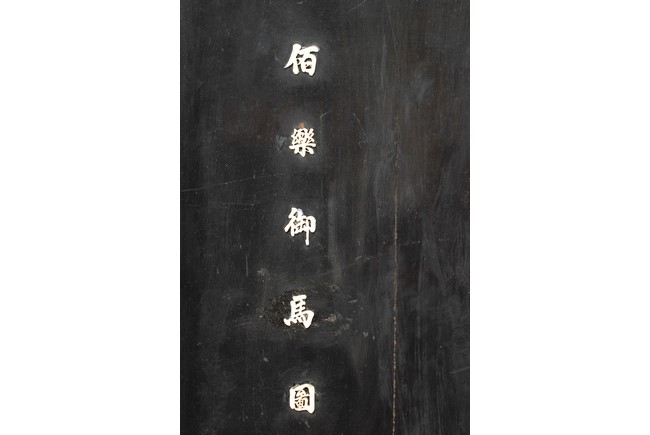 佰樂御馬圖